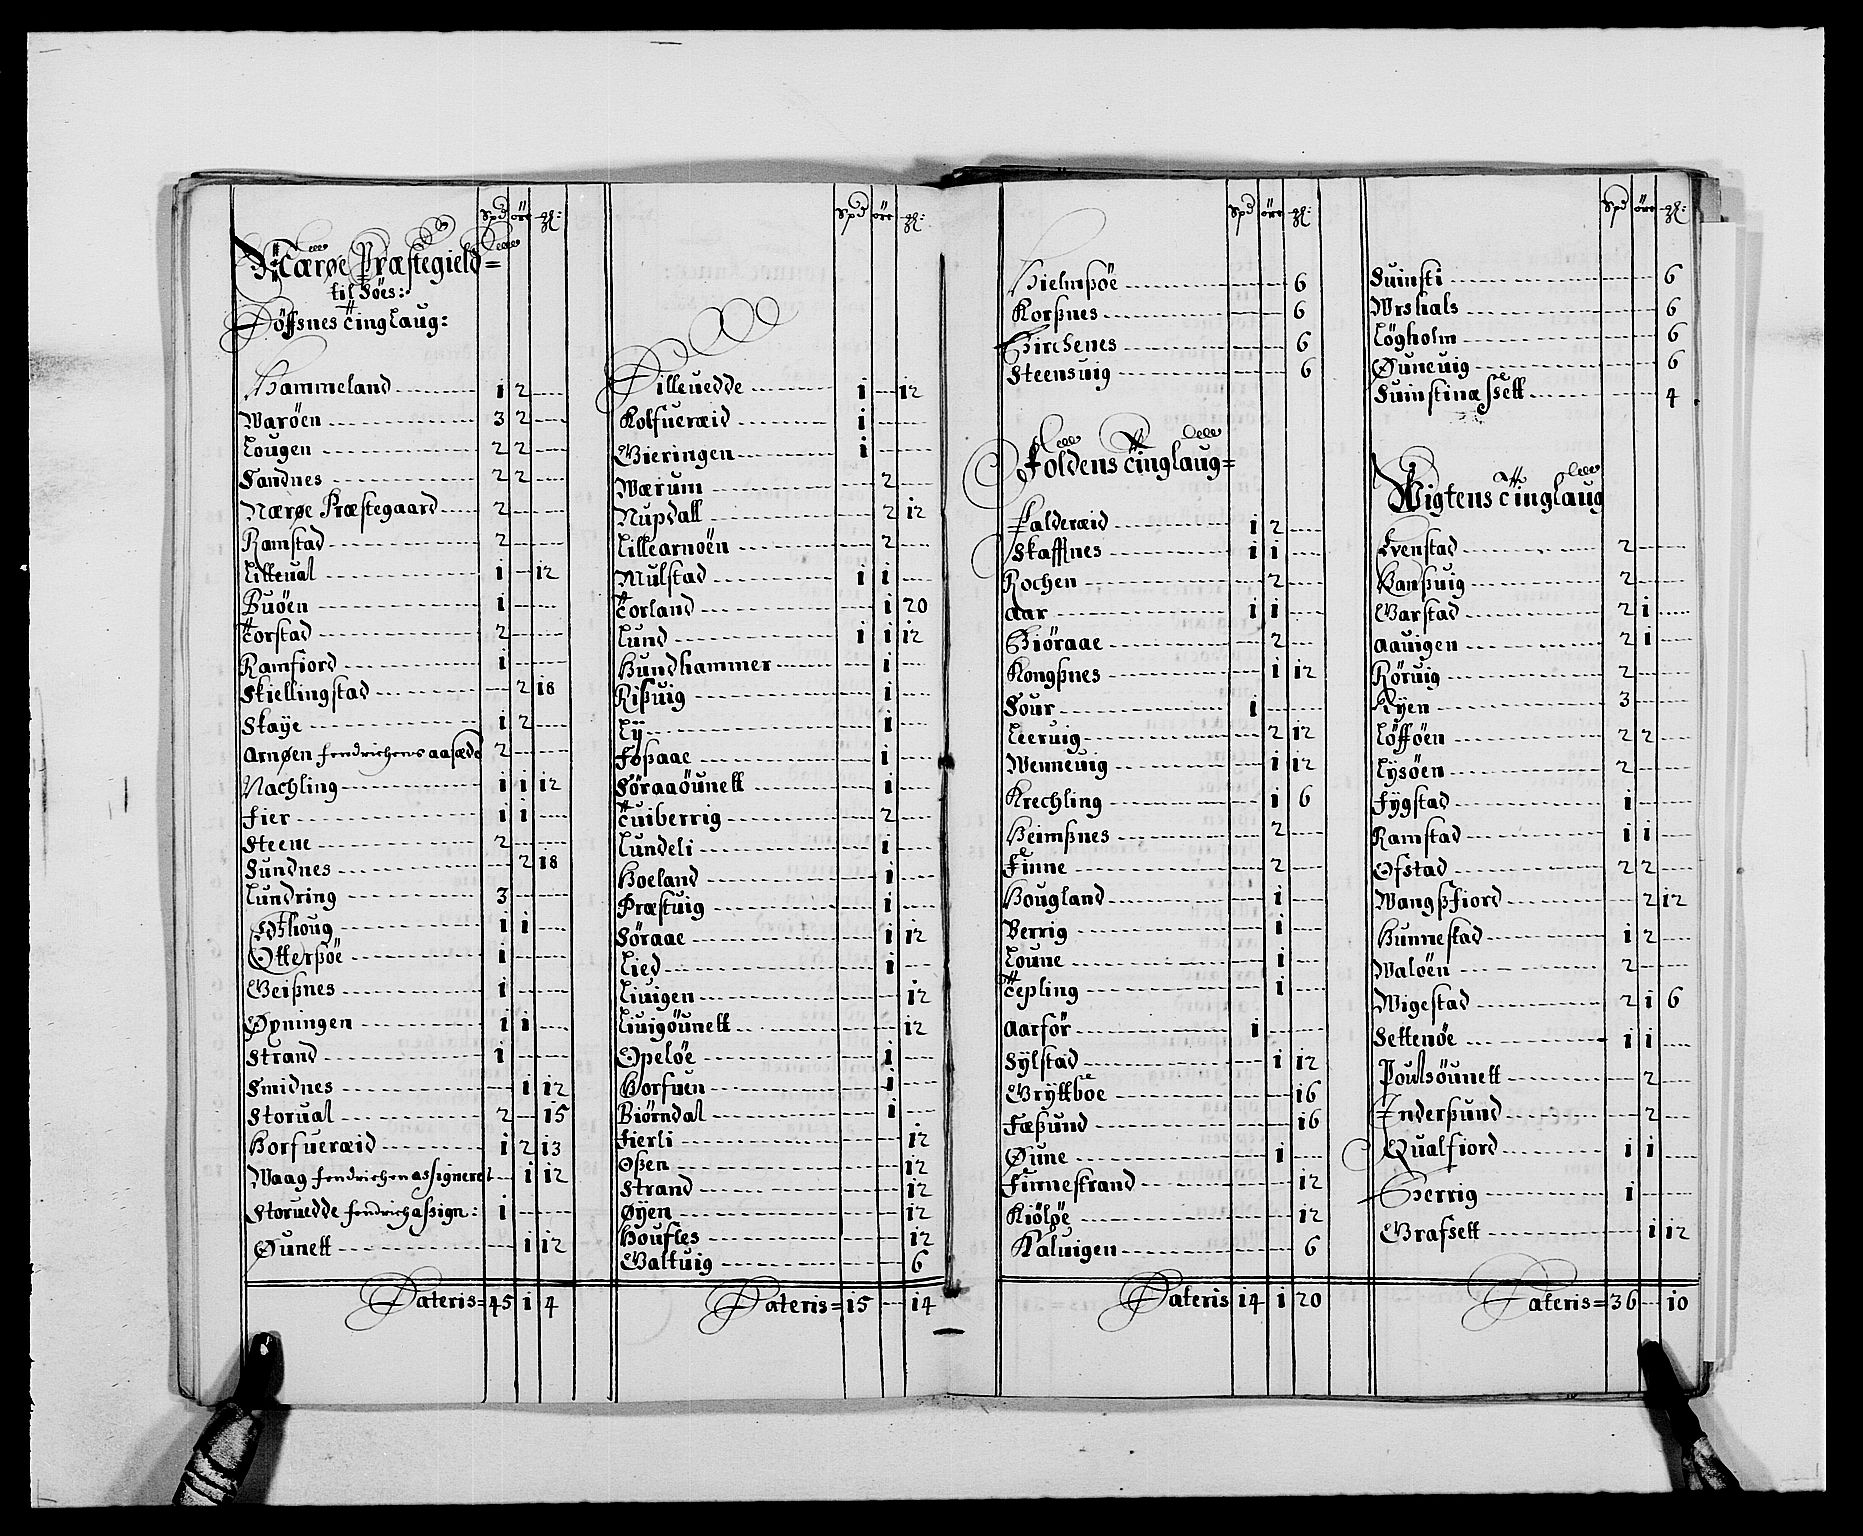 Spd öre mk:
Nærøe Præstegield=
til Söes:
Föffsnes Tinglaug:
Hammeland 1 2
Waröen 3 2
Lougen 2 2
Sandnes 2 2
Nærøe Præstegaard 2
Ramstad 2
Lilleual 1 12
Buöen 1
Torstad 2
Ramfiord 1
Skiellingstad 2 18
Skaÿe 1 2
Arnøen fendrichens aasæde 2
Nachling 1 1 12
Fier 1 1
Steene 2
Sundnes 2 18
Lundring 3
Edshoug 1 1
Otterßöe 1
Geißnes 1
Øpningen 1 1
Strand 1
Smidnes 1 12
Storual 2 15
Horfueræid 1 2 13
Waag fendrichen assigneret 1 12
Storuedde fendrich aßign: 1
Øunett 1 12
Lateris= 45 1 4
Spd öre mk:
Dilleuedde 1 12
Kolfueræid 1
Gieringen 1
Wærum 2
Nupdall 2 12
Lillearnöen 2
Mulstad 1 1
Torland 1 20
Lund 1 1 12
Hundhammer 1
Rißuig 1
Lÿ 1
Foßaae 1
Söraaöunett 1
Tuiberrig 2
Lundeli 1
Hoeland 1
Præstuig 1
Söraae 1 12
Lied 1
Liuigen 12
Liuigöunett 12
Opelöe 1
Horfuen 1
Biörndal 1
Fierli 12
Oßen 12
Strand 12
Øÿen 12
Houfles 12
Galtuig 6
Lateris= 15 14
Spd öre mk:
Hielmßöe 6
Korßnes 6
Kirchenes 6
Steensuig 6
Foldens Tinglaug=
Falderæid 1 2
Skaffnes 1 1
Rochen 2
Aar 1 1
Giöraae 2
Kongßnes 1 12
Sour 1
Leeruig 2 12
Wenneuig 1 12
Krechling 1 6
Heimßnes 2
Finne 2
Hougland 1
Berrig 1
Loune 1
Tepling 1
Aarför 1
Sÿlstad 1 12
Grÿttböe 16
Fæßund 16
Øune 1
Finnestrand 12
Kiölöe 12
Kaluigen 6
Lateris 14 1 20
Spd öre mk:
Suinsti 6
Wrshals 6
Lögholm 6
Øuneuig 6
Suinstinæssett 4
Wigtens Tinglaug
Evenstad 2
Hanßuig 2
Garstad 2 1
Aauigen 2 1
Röruig 2
Rÿen 3
Löfföen 2 2
Lÿsöen 2
Fÿgstad 1
Ramstad 1 1
Ofstad 2 2
Wangßfiord 2 12
Hunnestad 1 2
Walöen 2
Wigestad 2 1 6
Settenöe 1 1
Poulsöunett 2
Inderßund 2
Qualfiord 1 1
Herrig 1
Grafsett 1 12
Lateris= 36 10